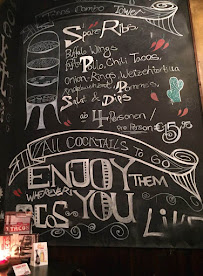 Texas Combo Tower
Spare Ribs
Buffalo Wings
Pollo, Chili Tacos,
Onion-Rings, Weizentortilla
Pommes
Salat & Dips
ab 4 Personen /
pro Person € 15,95
ALL COCKTAILS TO GO
ENJOY THEM
WHEREVER
YOU LIKE